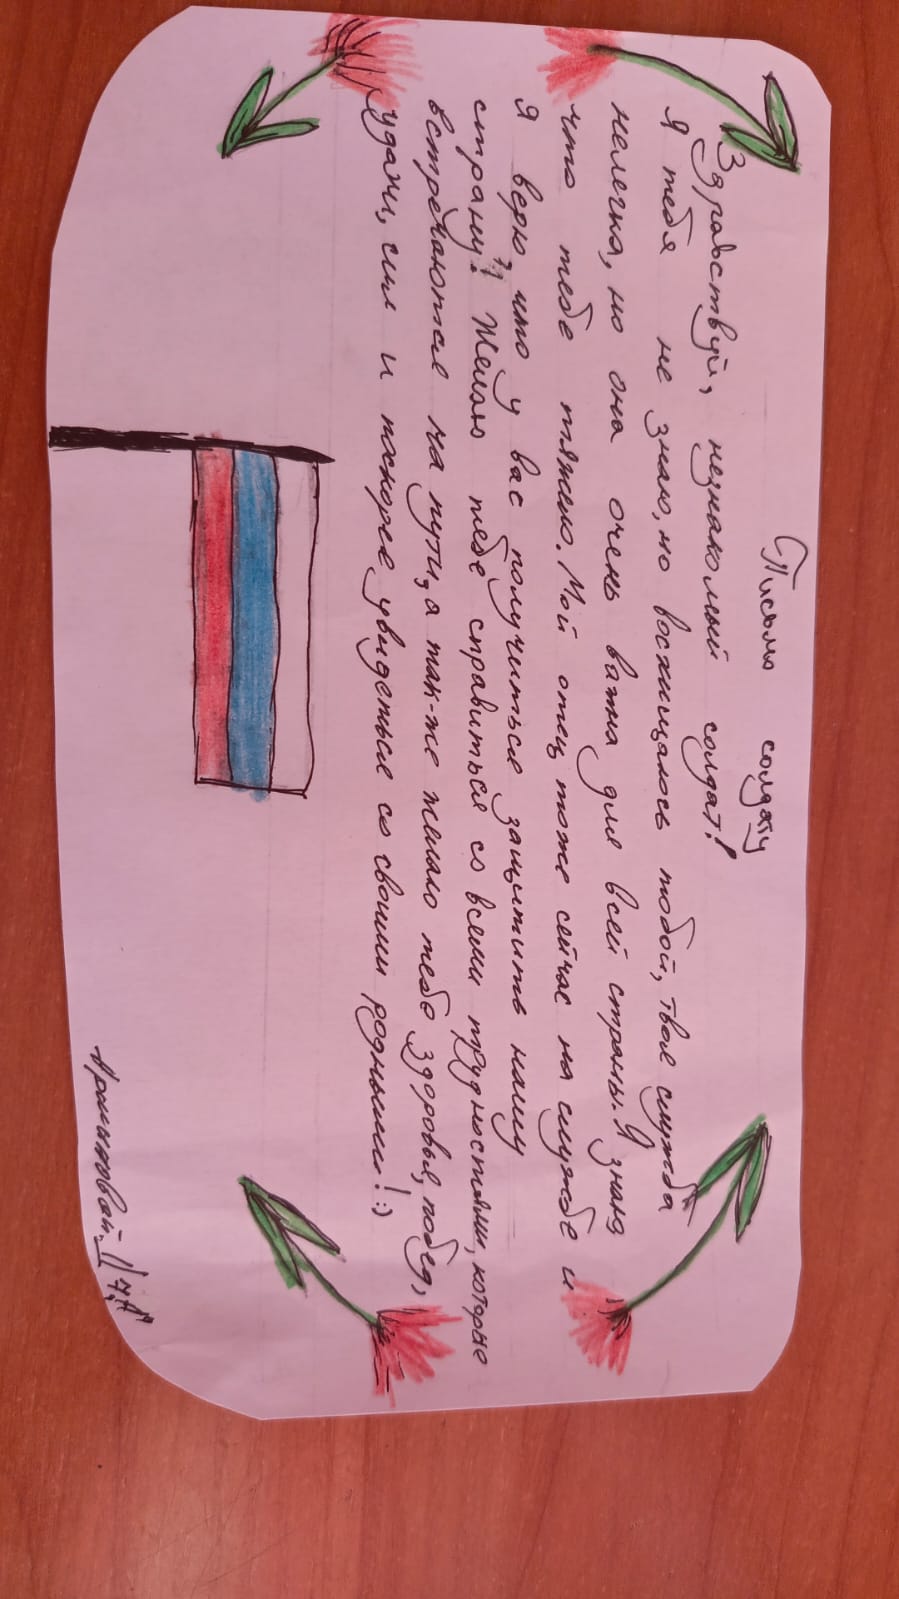 Письмо солдату
Здравствуй, незнакомый солдат!
Я тебя не знаю, но восхищаюсь тобой, твоя служба
нелегка, но она очень важна для всей страны. Я знаю
что тебе тяжело. Мой отец тоже сейчас на службе и
я верю, что у вас получиться защитить нашу
страну! Желаю тебе справиться со всеми трудностями, которые
встречаются на пути, а так-же желаю тебе здоровья, побед,
удачи, сил и поскорее увидеться со своими родными! :)
7,А"